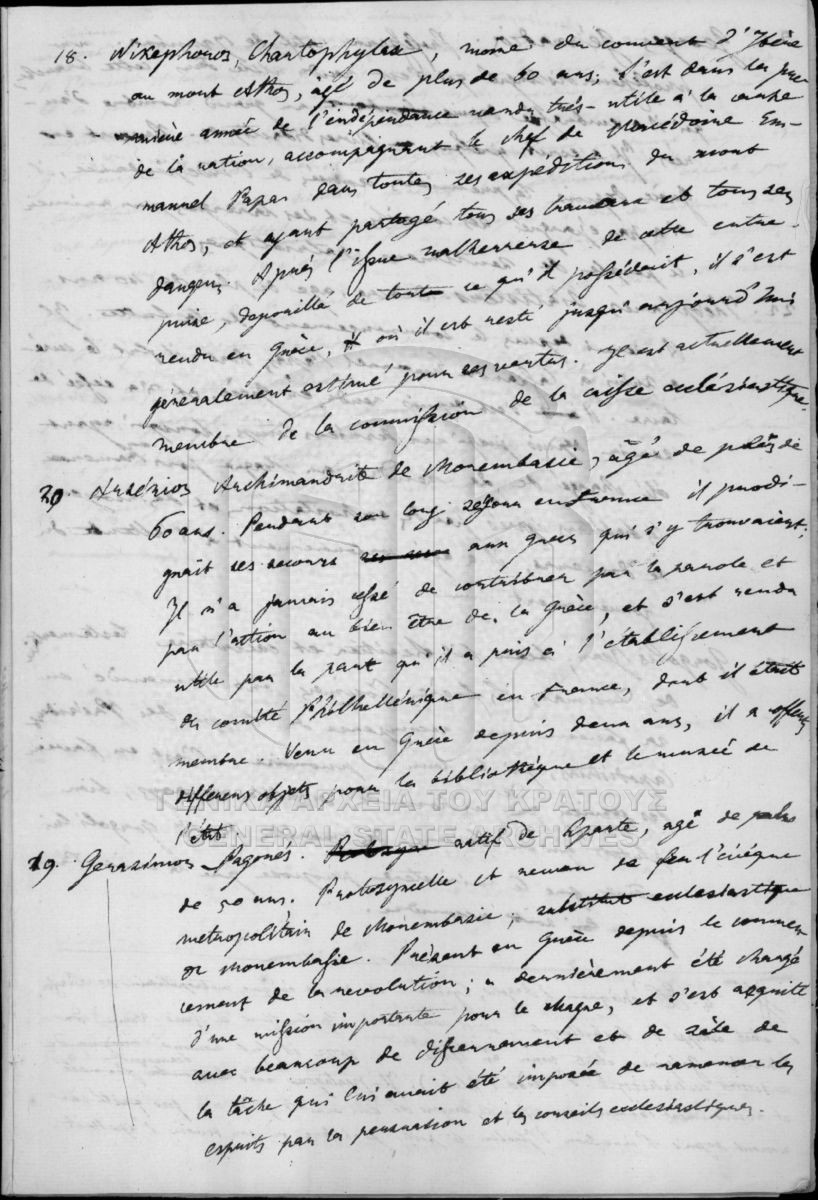 18. Nikephoros, Chartophylax, moine du couvent d'Ibère
au mont Athos, âgé de plus de 60 ans; s'est dans la pre-
mière année de l'indépendance rendu très-utile à la cause
de la nation, accompagnant le chef de Macédoine Em-
manuel Papas dans toutes ses expéditions du mont
Athos, et ayant partagé tous ses travaux et tous ses
dangers. Après l'issue malheureuse de cette entre-
prise, dépouillé de tout ce qu'il possédait, il s'est
rendu en Grèce, où il est resté jusqu'aujourd'hui
généralement estimé pour ses vertus. Il est actuellement
membre de la commission de la caisse ecclésiastique.
20. Arsénios Archimandrite de Monembasie, âgé de plus de
60 ans. Pendant son long séjour en France il prodi-
guait ses secours aux grecs qui s'y trouvaient;
Il n'a jamais cessé de contribuer par la parole et
par l'action au bien être de la Grèce, et s'est rendu
utile par la part qu'il a pris à l'établissement
du comité Philhellénique en France, dont il était
membre. Venu en Grèce depuis deux ans, il a offert
differens objets pour la bibliothèque et le musée de
l'état
19. Gerasimos Pagonés. natif de Sparte, agé de plus
de 50 ans. Protosyncelle et neveu de feu l'évêque
metropolitain de Monembasie; substitut ecclesiastique
de Monembasie. Présent en Grèce depuis le commen-
cement de la revolution; a dernièrement été chargé
d'une mission importante pour le magne, et s'est acquitté
avec beaucoup de discernement et de zèle de
la tâche qui lui avait été imposée de ramener les
esprits par la persuation et les conseils ecclesiastiques.
ΓΕΝΙΚΑ ΑΡΧΕΙΑ ΤΟΥ ΚΡΑΤΟΥΣ
GENERAL STATE ARCHIVES